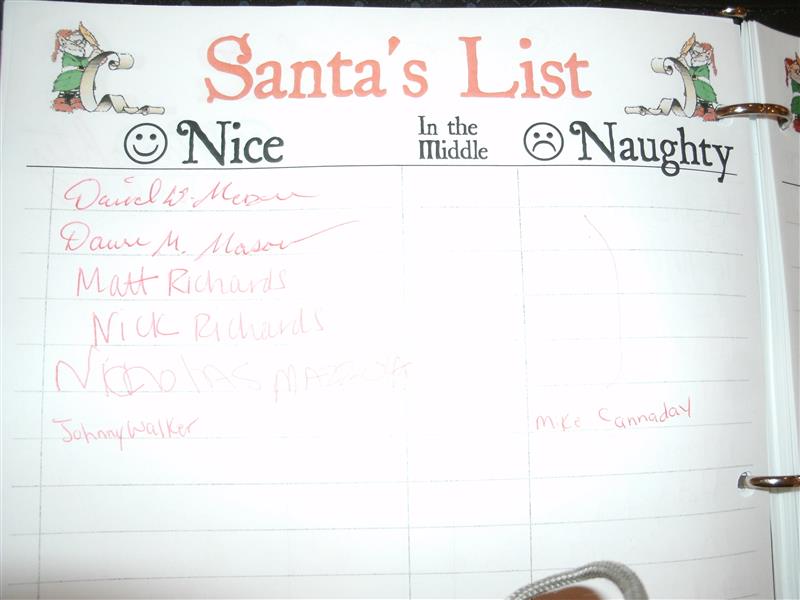 Santa's List
Nice
In the
Middle
Naughty
David W. Mason
Dawn M. Mason
Matt Richards
Nick Richards
Nickolas
Johnny Walker
Mike Cannaday